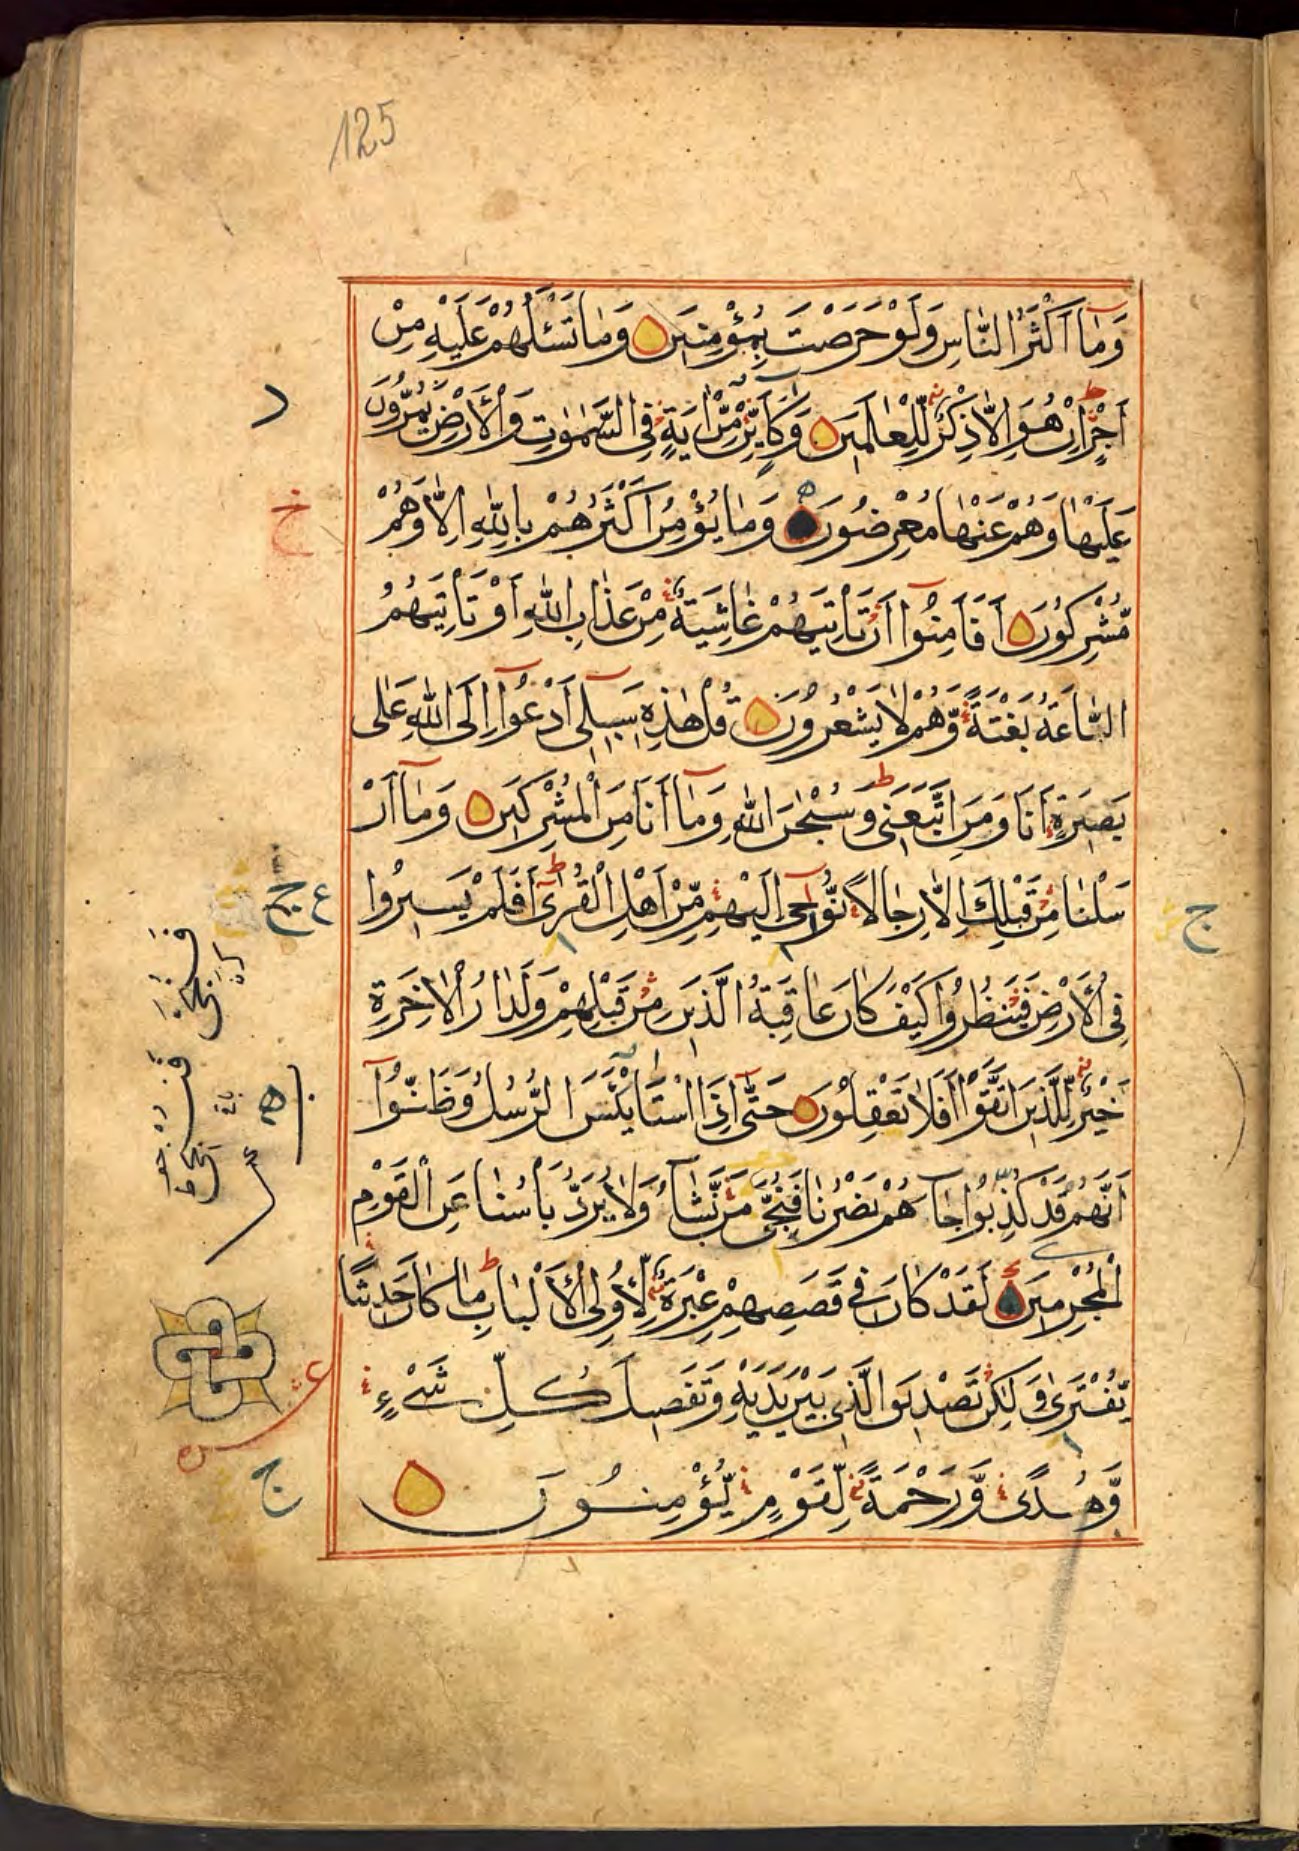 125
وَمَآ اَكْثَرُ النَّاسِ وَلَوْ حَرَصْتَ بِمُؤْمِنِيْنَ وَمَا تَسْئَلُهُمْ عَلَيْهِ مِنْ
اَجْرٍ اِنْ هُوَ اِلَّا ذِكْرٌ لِّلْعَالَمِيْنَ وَكَاَيِّنْ مِّنْ اٰيَةٍ فِى السَّمٰوٰتِ وَالْاَرْضِ يَمُرُّوْنَ
عَلَيْهَا وَهُمْ عَنْهَا مُعْرِضُوْنَ وَمَا يُؤْمِنُ اَكْثَرُهُمْ بِاللّٰهِ اِلَّا وَهُمْ
مُّشْرِكُوْنَ اَفَاَمِنُوْٓا اَنْ تَاْتِيَهُمْ غَاشِيَةٌ مِّنْ عَذَابِ اللّٰهِ اَوْ تَاْتِيَهُمُ
السَّاعَةُ بَغْتَةً وَّهُمْ لَا يَشْعُرُوْنَ قُلْ هٰذِهٖ سَبِيْلِىٓ اَدْعُوْٓا اِلَى اللّٰهِ عَلٰى
بَصِيْرَةٍ اَنَا وَمَنِ اتَّبَعَنِىْ وَسُبْحٰنَ اللّٰهِ وَمَآ اَنَا مِنَ الْمُشْرِكِيْنَ وَمَآ اَرْ
سَلْنَا مِنْ قَبْلِكَ اِلَّا رِجَالًا نُّوْحِىٓ اِلَيْهِمْ مِّنْ اَهْلِ الْقُرٰىٓ اَفَلَمْ يَسِيْرُوْا
فِى الْاَرْضِ فَيَنْظُرُوْا كَيْفَ كَانَ عَاقِبَةُ الَّذِيْنَ مِنْ قَبْلِهِمْ وَلَدَارُ الْاٰخِرَةِ
خَيْرٌ لِّلَّذِيْنَ اتَّقَوْا اَفَلَا تَعْقِلُوْنَ حَتّٰىٓ اِذَا اسْتَايْئَسَ الرُّسُلُ وَظَنُّوْٓا
اَنَّهُمْ قَدْ كُذِبُوْا جَآءَهُمْ نَصْرُنَا فَنُجِّىَ مَنْ نَّشَآءُ وَلَا يُرَدُّ بَاْسُنَا عَنِ الْقَوْمِ
الْمُجْرِمِيْنَ لَقَدْ كَانَ فِىْ قَصَصِهِمْ عِبْرَةٌ لِّاُولِى الْاَلْبَابِ مَا كَانَ حَدِيْثًا
يُّفْتَرٰى وَلٰكِنْ تَصْدِيْقَ الَّذِىْ بَيْنَ يَدَيْهِ وَتَفْصِيْلَ كُلِّ شَىْءٍ
وَّهُدًى وَّرَحْمَةً لِّقَوْمٍ يُّؤْمِنُوْنَ
خ
ع ج
ج
ج